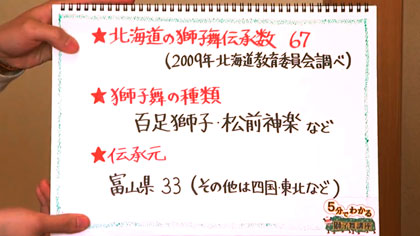 ★北海道の獅子舞伝承数 67
(2009年 北海道教育委員会調べ)
★獅子舞の種類
百足獅子・松前神楽 など
★伝承元
富山県 33 (その他は四国・東北など)
5分でわかる
獅子舞講座